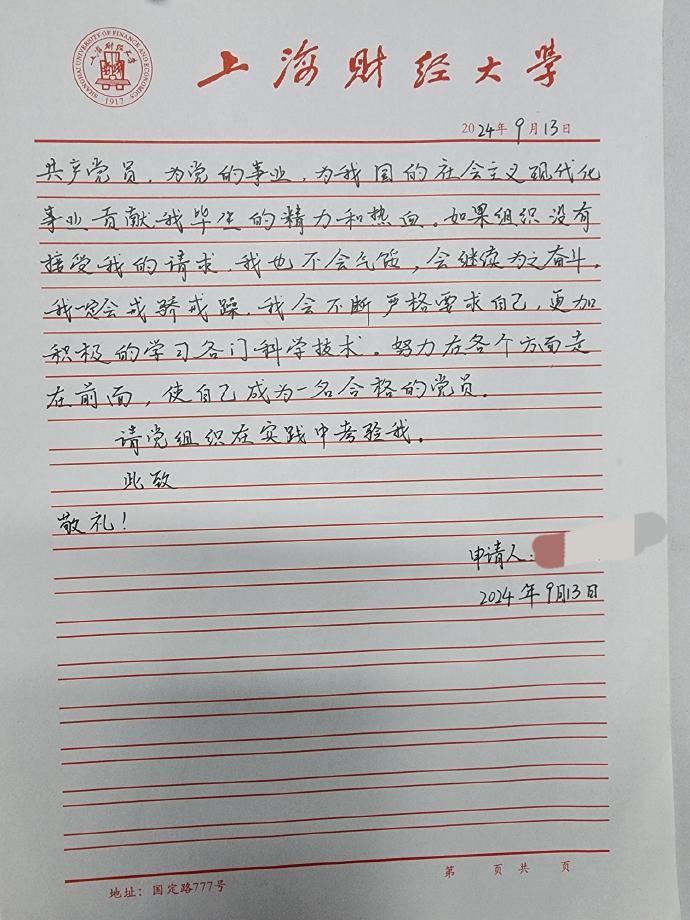 SHANGHAI UNIVERSITY OF FINANCE AND ECONOMICS
上海财经大学
1917
上海财经大学
2024年9月13日
共产党员,为党的事业,为我国的社会主义现代化
事业贡献我毕生的精力和热血。如果组织没有
接受我的请求,我也不会气馁,会继续为之奋斗。
我一定会戒骄戒躁,我会不断严格要求自己,更加
积极的学习各门科学技术。努力在各个方面走
在前面,使自己成为一名合格的党员。
请党组织在实践中考验我。
此致
敬礼!
申请人:
2024年9月13日
第 页 共 页
地址:国定路777号